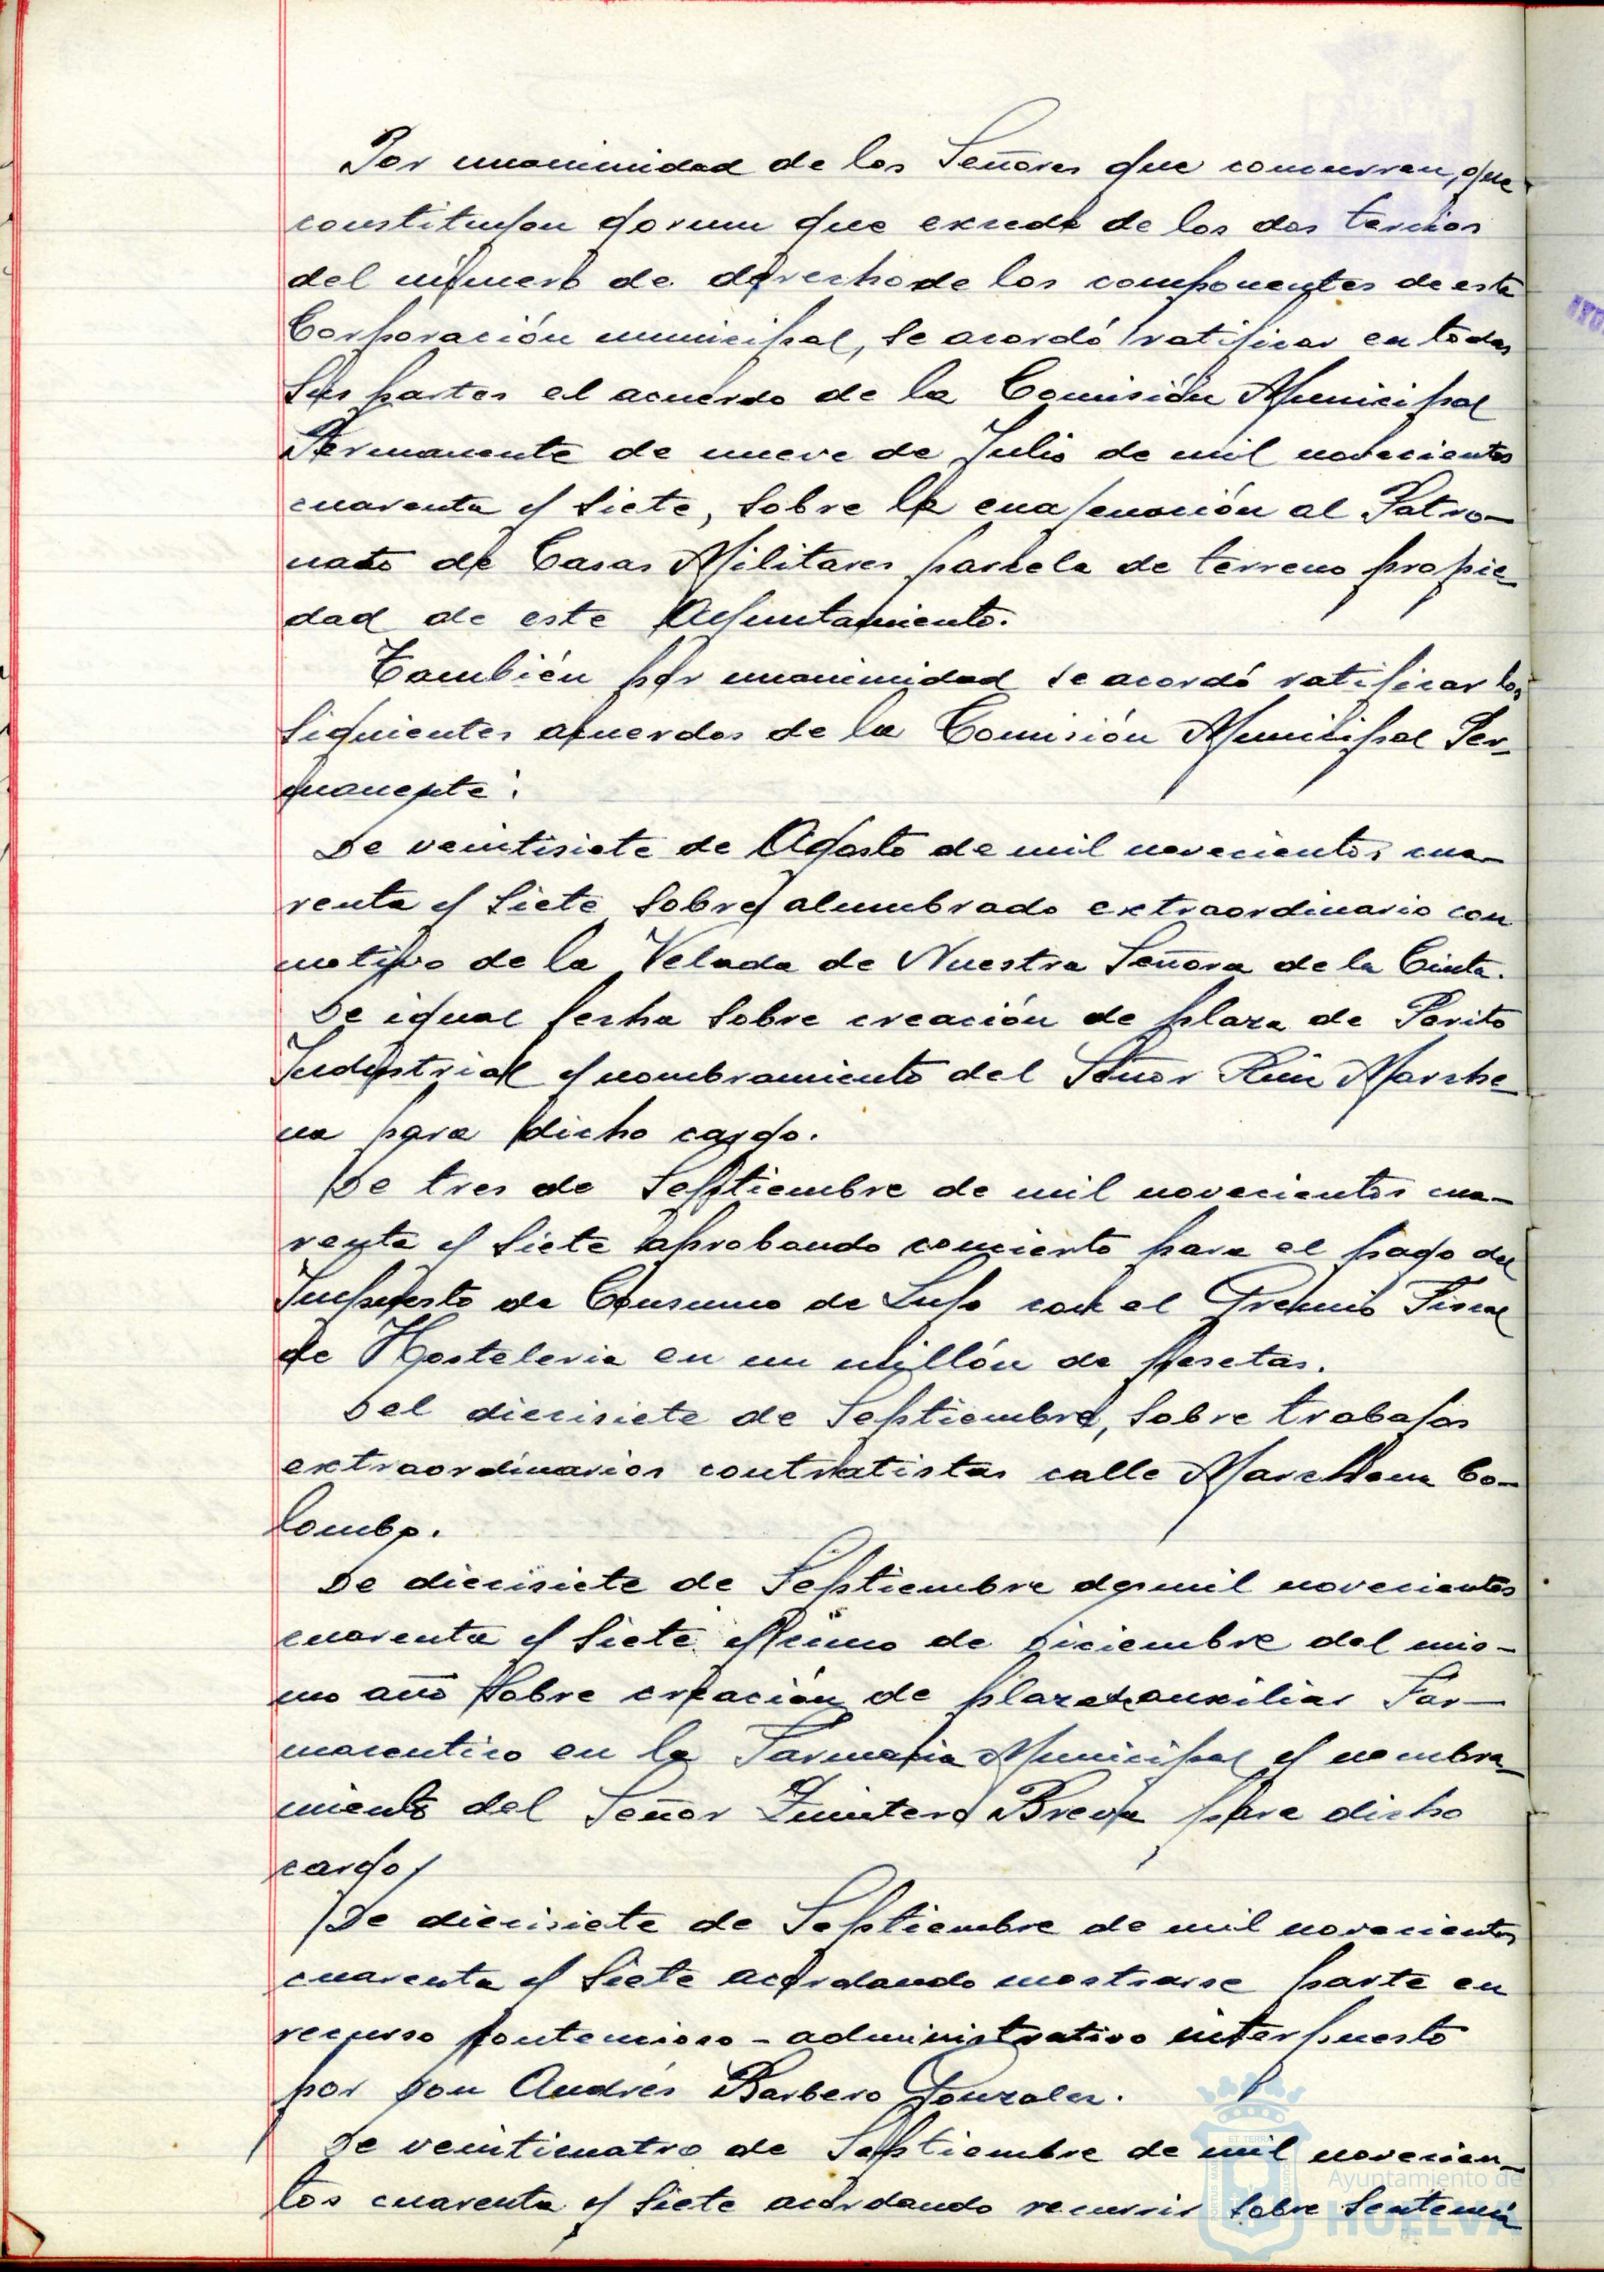 Por unanimidad de los Señores que concurren, que
constituyen qorum que excede de los dos tercios
del número de derecho de los componentes de esta
Corporación municipal, se acordó ratificar en todas
sus partes el acuerdo de la Comisión Municipal
Permanente de nueve de Julio de mil novecientos
cuarenta y siete, sobre la enajenación al Patro-
nato de Casas Militares parcela de terreno propie-
dad de este Ayuntamiento.
También por unanimidad se acordó ratificar los
siguientes acuerdos de la Comisión Municipal Per-
manente:
De veintisiete de Agosto de mil novecientos cua-
renta y siete sobre alumbrado extraordinario con
motivo de la Velada de Nuestra Señora de la Cinta.
De igual fecha sobre creación de plaza de Perito
Industrial y nombramiento del Señor Ruiz Marche-
na para dicho cargo.
De tres de Septiembre de mil novecientos cua-
renta y siete aprobando concierto para el pago del
Impuesto de Consumo de Lujo con el Gremio Fiscal
de Hosteleria en un millón de pesetas.
Del diecisiete de Septiembre, sobre trabajos
extraordinarios contratistas calle Marchena Co-
lombo.
De diecisiete de Septiembre de mil novecientos
cuarenta y siete y de Diciembre del mis-
mo año sobre creación de plaza auxiliar Far-
maceutico en la Farmacia Municipal y nombra-
miento del Señor Quintero Breva para dicho
cargo
De diecisiete de Septiembre de mil novecientos
cuarenta y siete acordando mostrarse parte en
recurso contencioso-administrativo interpuesto
por don Andrés Barbero Gonzalez.
De veinticuatro de Septiembre de mil novecien-
tos cuarenta y siete acordando recurrir sobre sentencia
Ayuntamiento de
HUELVA